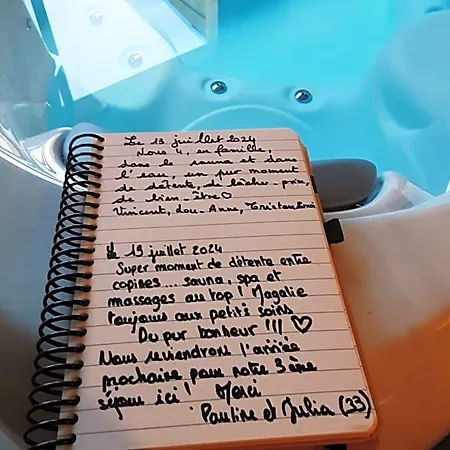 Le 13 juillet 2024
Nous 4, en famille,
dans le sauna et dans
l'eau un pur moment
de détente, de lâcher-prise,
de bien-être ♡
Vincent, Lou-Anne,
Le 19 juillet 2024
Super moment de détente entre
copines... sauna, spa et
massages au top ! Magalie
toujours aux petits soins
Du pur bonheur !!! ♡
Nous reviendrons l'année
prochaine pour notre 3ème
séjour ici ! Merci
Pauline et Julia (33)